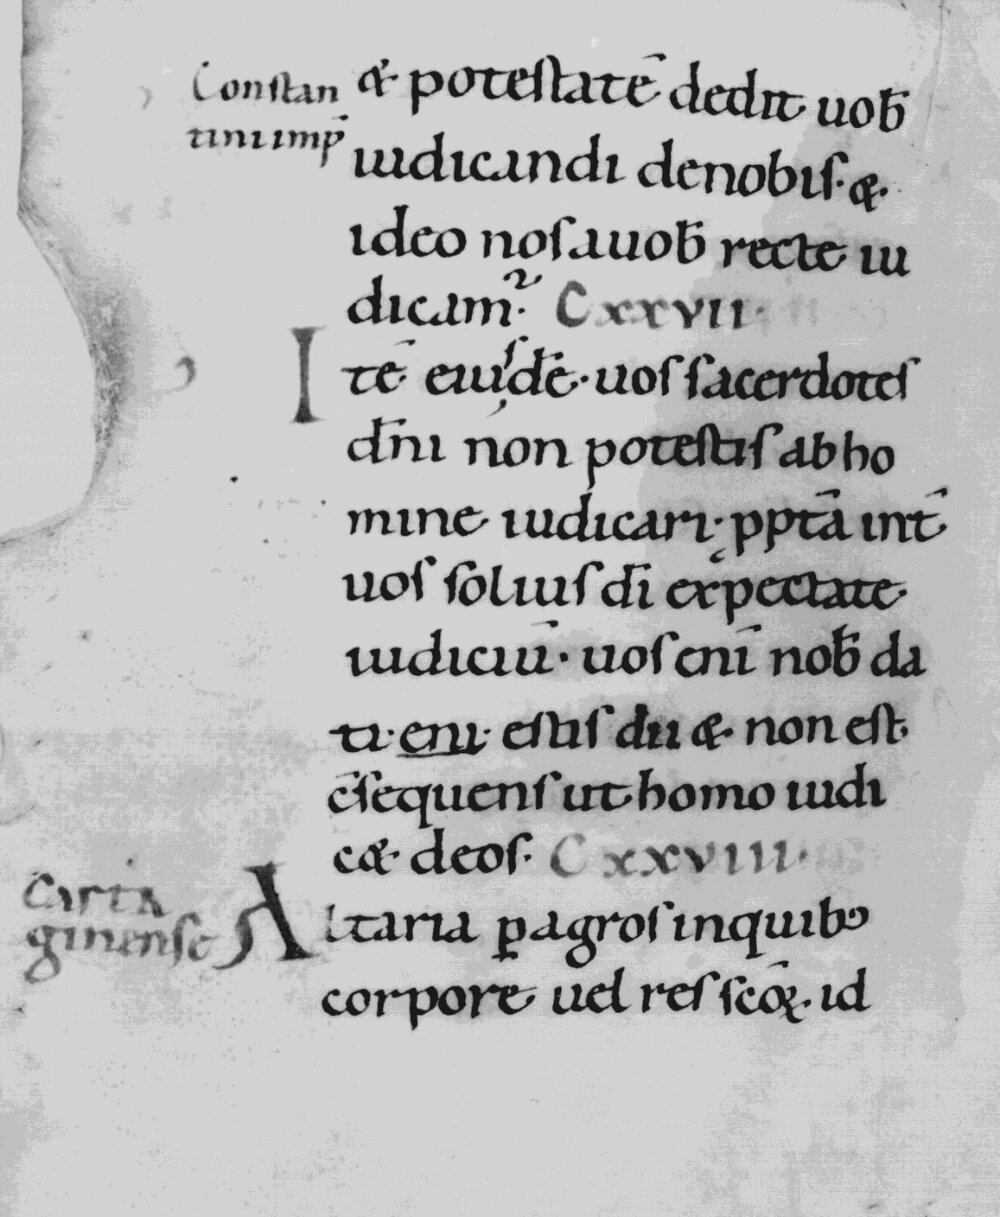 Constan
tini imp̄
& potestatē dedit uob̄
iudicandi denobis· &·
ideo nos auob̄ recte iu
dicam². Cxxvii·
Itē eiusdē· uos sacerdotes
dn̄i non potestis ab ho
mine iudicari· ꝓptā int̄
uos solius dī expectate
iudiciū· uos enī nob̄ da
ti· eni· estis dii &· non est
c̄sequens ut homo iudi
c& deos· Cxxviii·
Carta
ginense
Altaria ꝑ agros in quibꝰ
corpore uel res sc̄oꝝ· id